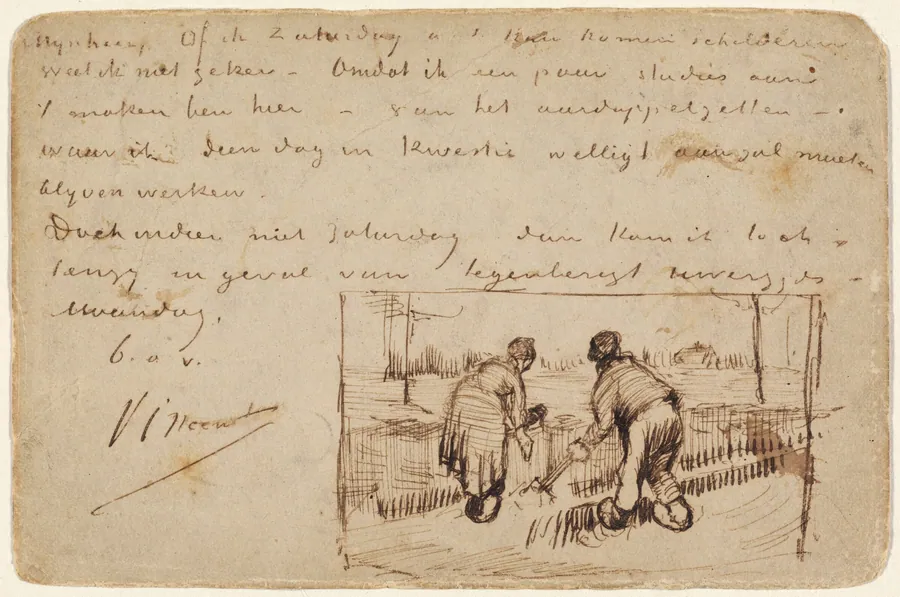 Mynheer, Of ik Zaturdag a s kan komen schilderen
weet ik niet zeker – Omdat ik een paar studies aan
't maken ben hier – van het aardappelzetten –
waar ik dien dag in kwestie welligt aan zal moeten
blyven werken.
Doch indien niet Zaturdag dan kom ik toch –
tenzy in geval van tegenberigt uwerzyds –
Maandag.
b. a. v.
Vincent